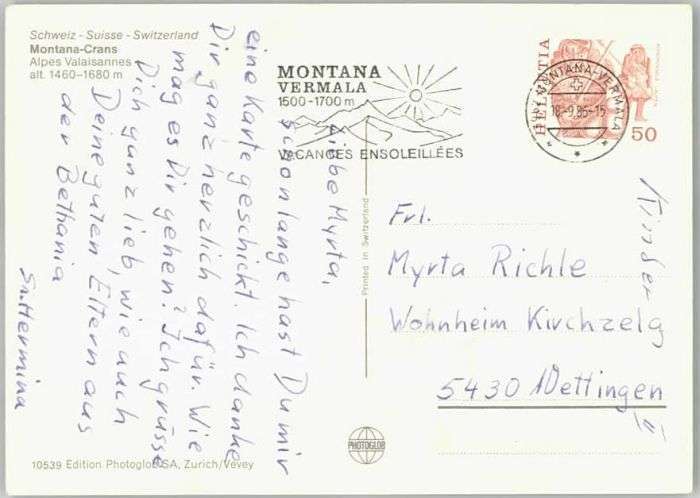 Schweiz - Suisse - Switzerland
Montana-Crans
Alpes Valaisannes
alt. 1460–1680 m
MONTANA
VERMALA
1500-1700 m
VACANCES ENSOLEILLÉES
MONTANA-VERMALA
18.-9.86-15
HELVETIA
50
Liebe Myrta,
schon lange hast Du mir
eine Karte geschickt. Ich danke
Dir ganz herzlich dafür. Wie
mag es Dir gehen? Ich grüsse
Dich ganz lieb, wie auch
Deine guten Eltern aus
der Bethania
Sr. Hermina
Frl.
Myrta Richle
Wohnheim Kirchzelg
5430 Wettingen
Kinder
Printed in Switzerland
PHOTOGLOB
10539 Edition Photoglob SA, Zurich/Vevey